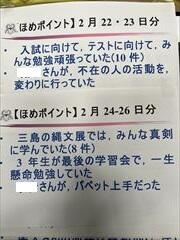 【ほめポイント】2月22・23日分
・ 入試に向けて,テストに向けて,み
んな勉強頑張っていた(10件)
・ さんが,不在の人の活動を,
変わりに行っていた
【ほめポイント】2月24-26日分
・ 三島の縄文展では,みんな真剣
に学んでいた(8件)
・ 3年生が最後の学習会で,一生
懸命勉強していた
・ さんが,パペット上手だった